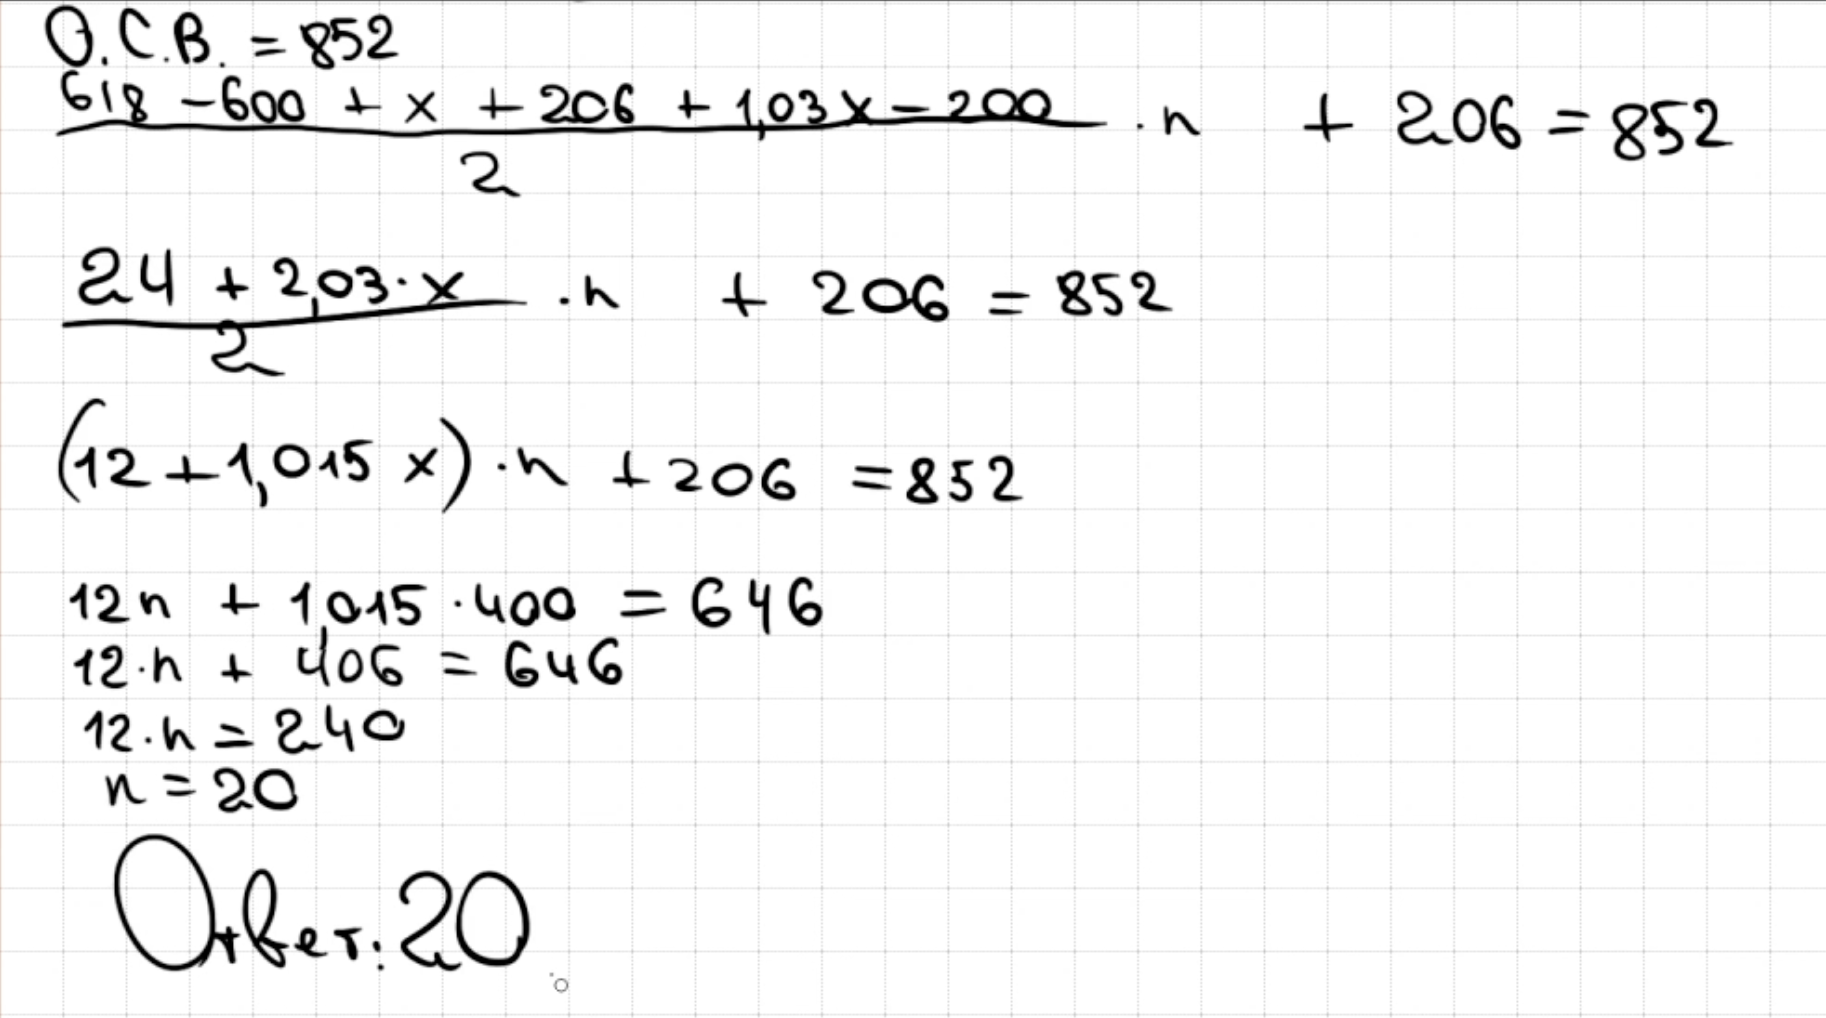 О.С.В. = 852
(618 - 600 + x + 206 + 1,03x - 200) / 2 · n + 206 = 852
(24 + 2,03 · x) / 2 · n + 206 = 852
(12 + 1,015 x) · n + 206 = 852
12n + 1,015 · 400 = 646
12 · n + 406 = 646
12 · n = 240
n = 20
Ответ: 20